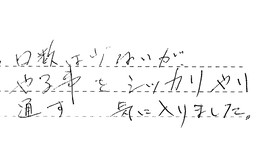 口数は少ないが
やる事をシッカリやり
通す 気に入りました。